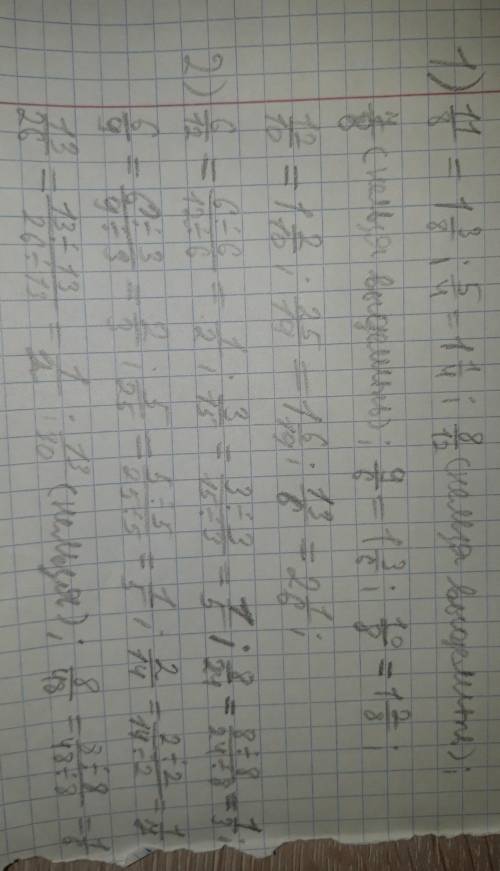 1) 11/8 = 1 3/8; 5/4 = 1 1/4; 8/12 (нельзя
4/8 (нельзя ; 9/6 = 1 3/6; 10/8 = 1 2/8;
12/10 = 1 2/10; 25/19 = 1 6/19; 13/6 = 2 1/6;
2) 6/12 = 6÷6/12÷6 = 1/2; 3/15 = 3÷3/15÷3 = 1/5; 8/24 = 8÷8/24÷8 = 1/3;
6/9 = 6÷3/9÷3 = 2/3; 5/25 = 5÷5/25÷5 = 1/5; 2/14 = 2÷2/14÷2 = 1/7
13/26 = 13÷13/26÷13 = 1/2; 13/40 (нельзя); 8/48 = 8÷8/48÷8 =